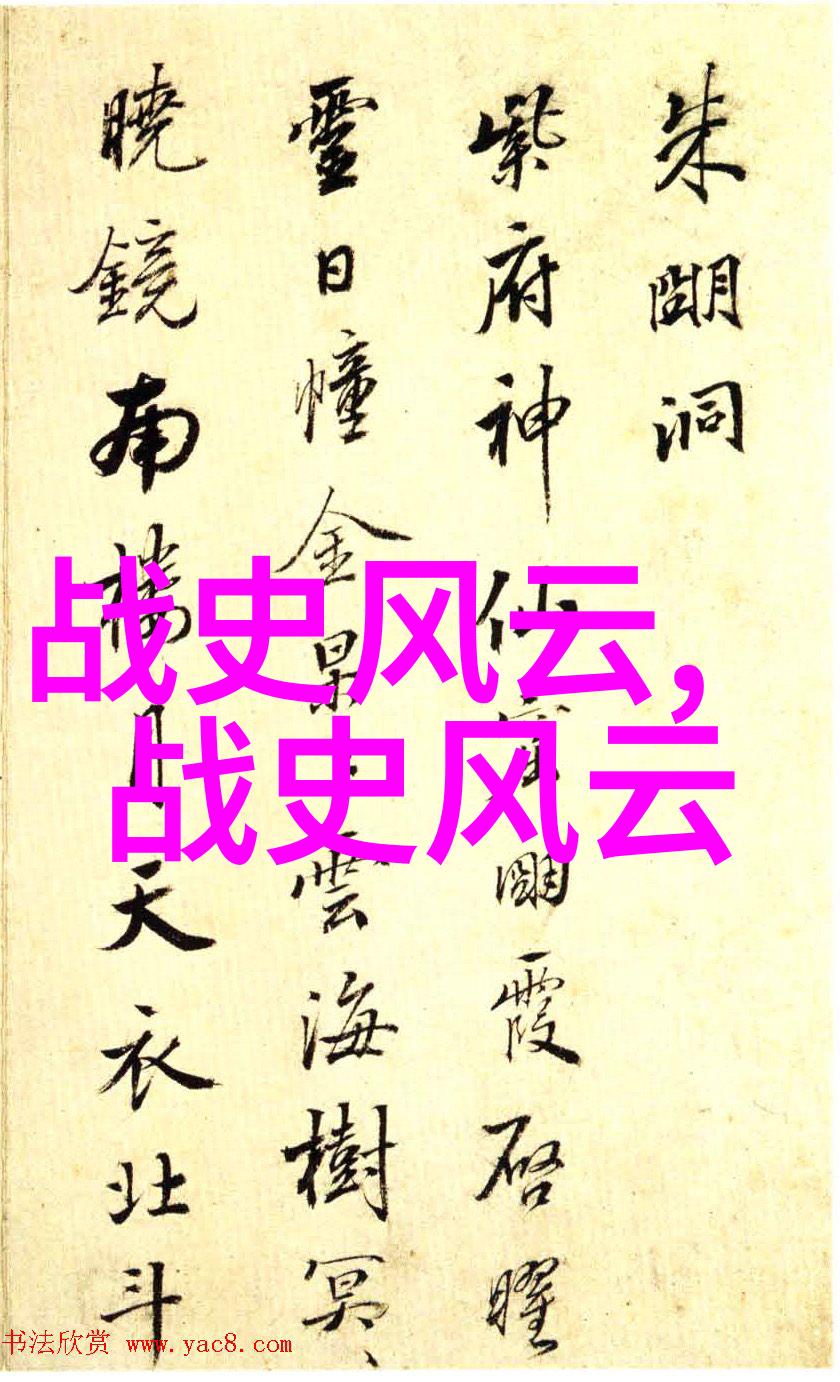 朱朙洞
紫府神仙朙霞启曜
靈日幢金景、雲海樹冥、
曉鏡南樓月天衣北斗
战史风云,
战史风云
书法欣赏 www.yac8.com